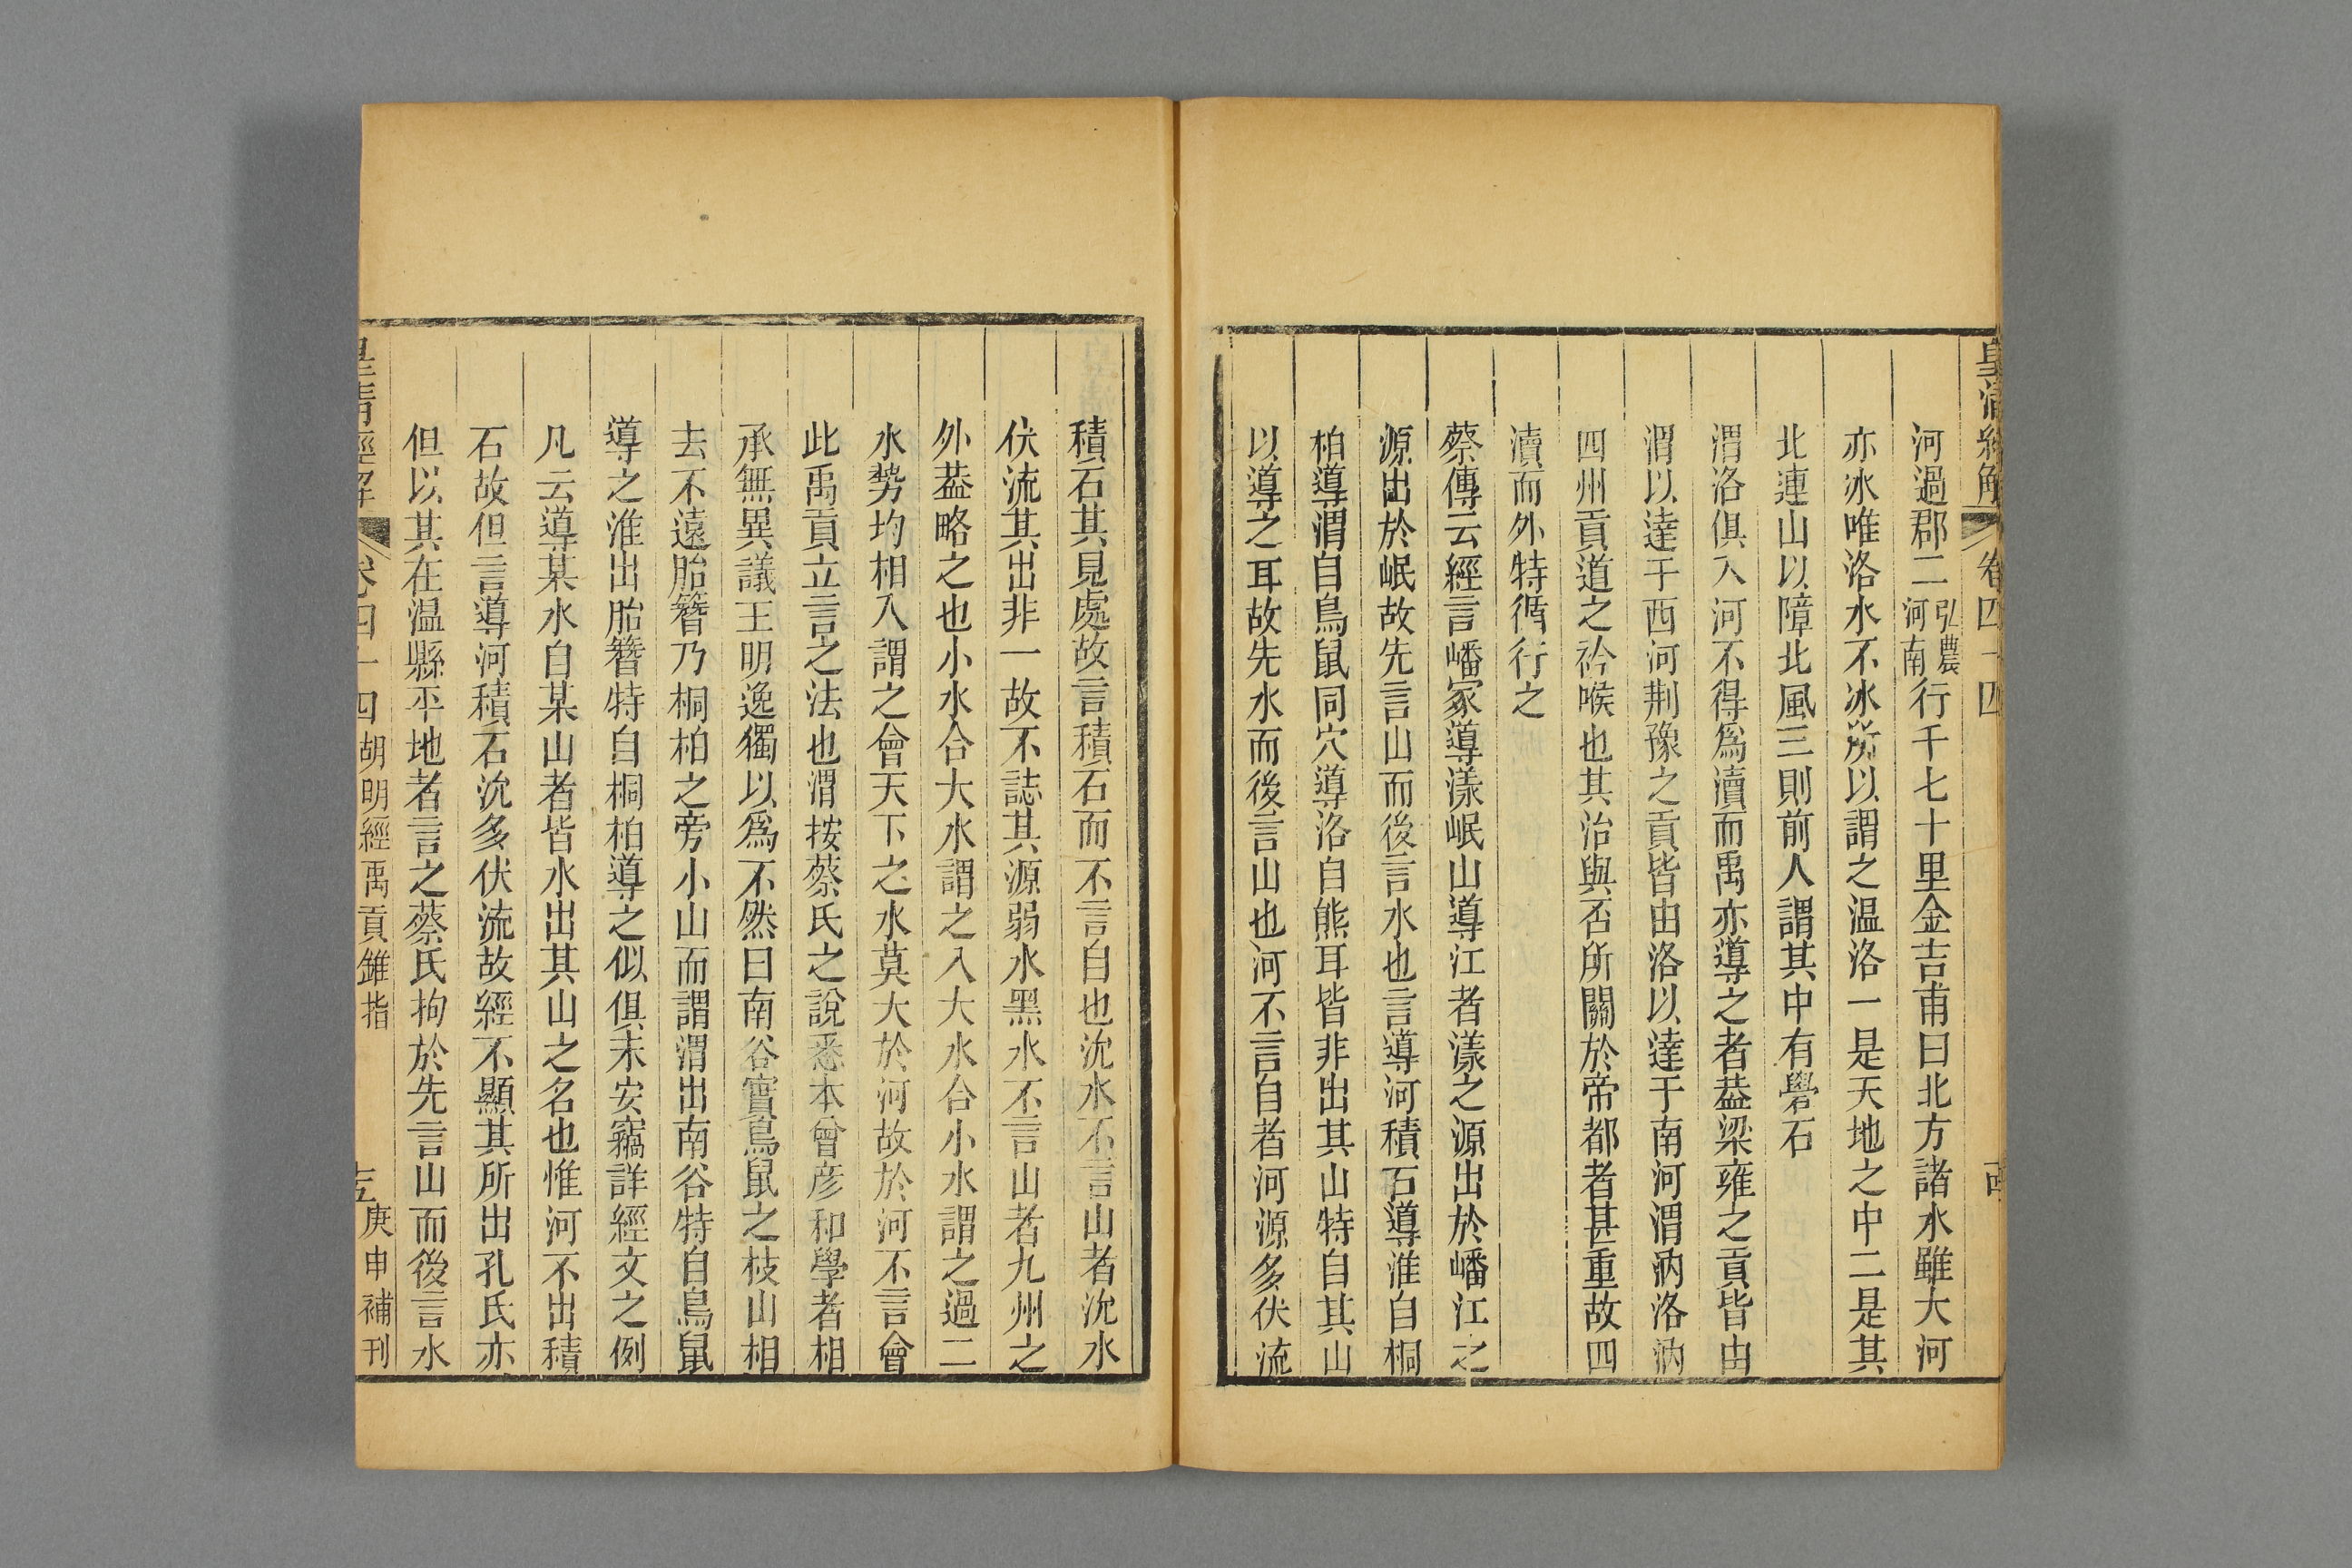 皇清經解 卷四十四
河過郡二弘農河南行千七十里金吉甫曰北方諸水雖大河
亦冰唯洛水不冰所以謂之温洛一是天地之中二是其
北連山以障北風三則前人謂其中有礜石
渭洛俱入河不得爲瀆而禹亦導之者葢梁雍之貢皆由
渭以達于西河荆豫之貢皆由洛以達于南河渭汭洛汭
四州貢道之衿喉也其治與否所關於帝都者甚重故四
瀆而外特循行之
蔡傳云經言嶓冢導漾岷山導江者漾之源出於嶓江之
源出於岷故先言山而後言水也言導河積石導淮自桐
柏導渭自鳥鼠同穴導洛自熊耳皆非出其山特自其山
以導之耳故先水而後言山也河不言自者河源多伏流
積石其見處故言積石而不言自也沇水不言山者沇水
伏流其出非一故不誌其源弱水黑水不言山者九州之
外葢略之也小水合大水謂之入大水合小水謂之過二
水勢均相入謂之會天下之水莫大於河故於河不言會
此禹貢立言之法也渭按蔡氏之說悉本曾彦和學者相
承無異議王明逸獨以爲不然曰南谷實鳥鼠之枝山相
去不遠胎簪乃桐柏之旁小山而謂渭出南谷特自鳥鼠
導之淮出胎簪特自桐柏導之似俱未安竊詳經文之例
凡云導某水自某山者皆水出其山之名也惟河不出積
石故但言導河積石沇多伏流故經不顯其所出孔氏亦
但以其在温縣平地者言之蔡氏拘於先言山而後言水
皇清經解 卷四十四 胡明經禹貢錐指 十五 庚申補刊